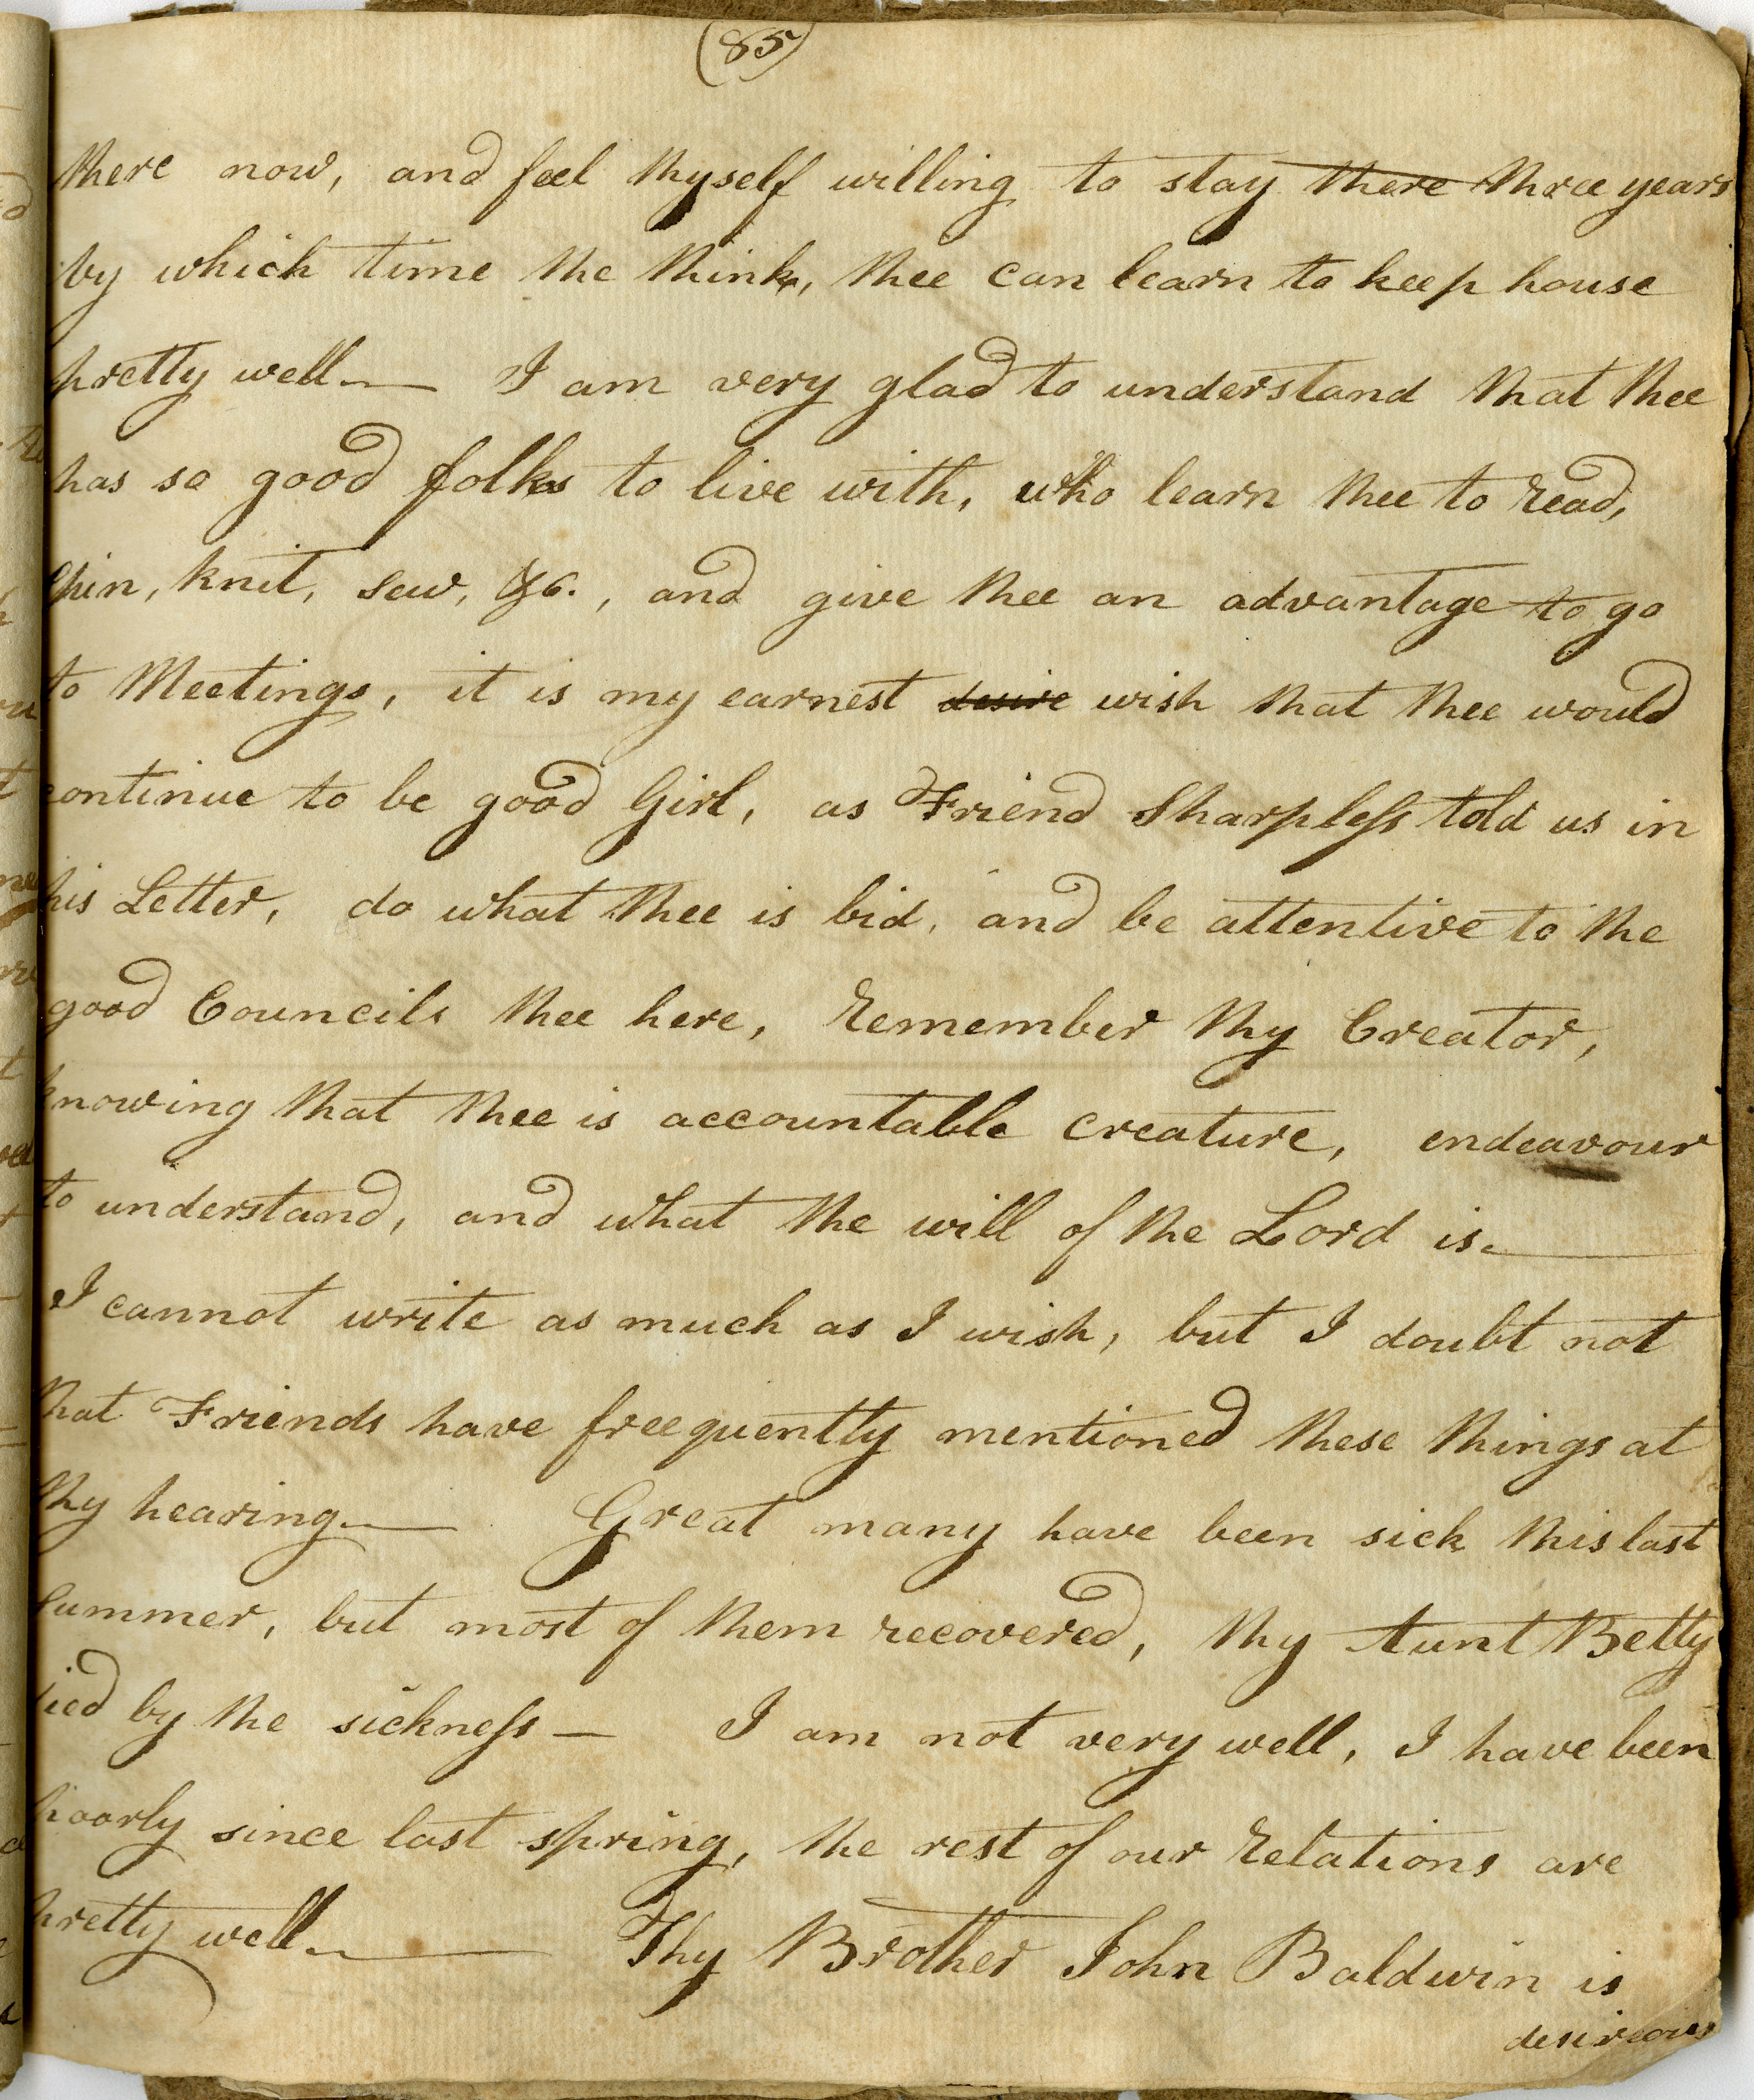 (85)
there now, and feel thyself willing to stay there three years
by which time the think, thee can learn to keep house
pretty well — I am very glad to understand that thee
has so good folks to live with, who learn thee to read,
spin, knit, sew, &c., and give thee an advantage to go
to Meetings, it is my earnest desire wish that thee would
continue to be good Girl, as Friend Sharpless told us in
his Letter, do what thee is bid, and be attentive to the
good Councils thee here, remember thy Creator,
knowing that thee is accountable creature, endeavour
to understand, and what the will of the Lord is. —
I cannot write as much as I wish, but I doubt not
that Friends have freequently mentioned these things at
thy hearing. — Great many have been sick this last
Summer, but most of them recovered, thy Aunt Betty
died by the sickness — I am not very well, I have been
poorly since last spring, the rest of our relations are
pretty well. — Thy Brother John Baldwin is
desireous